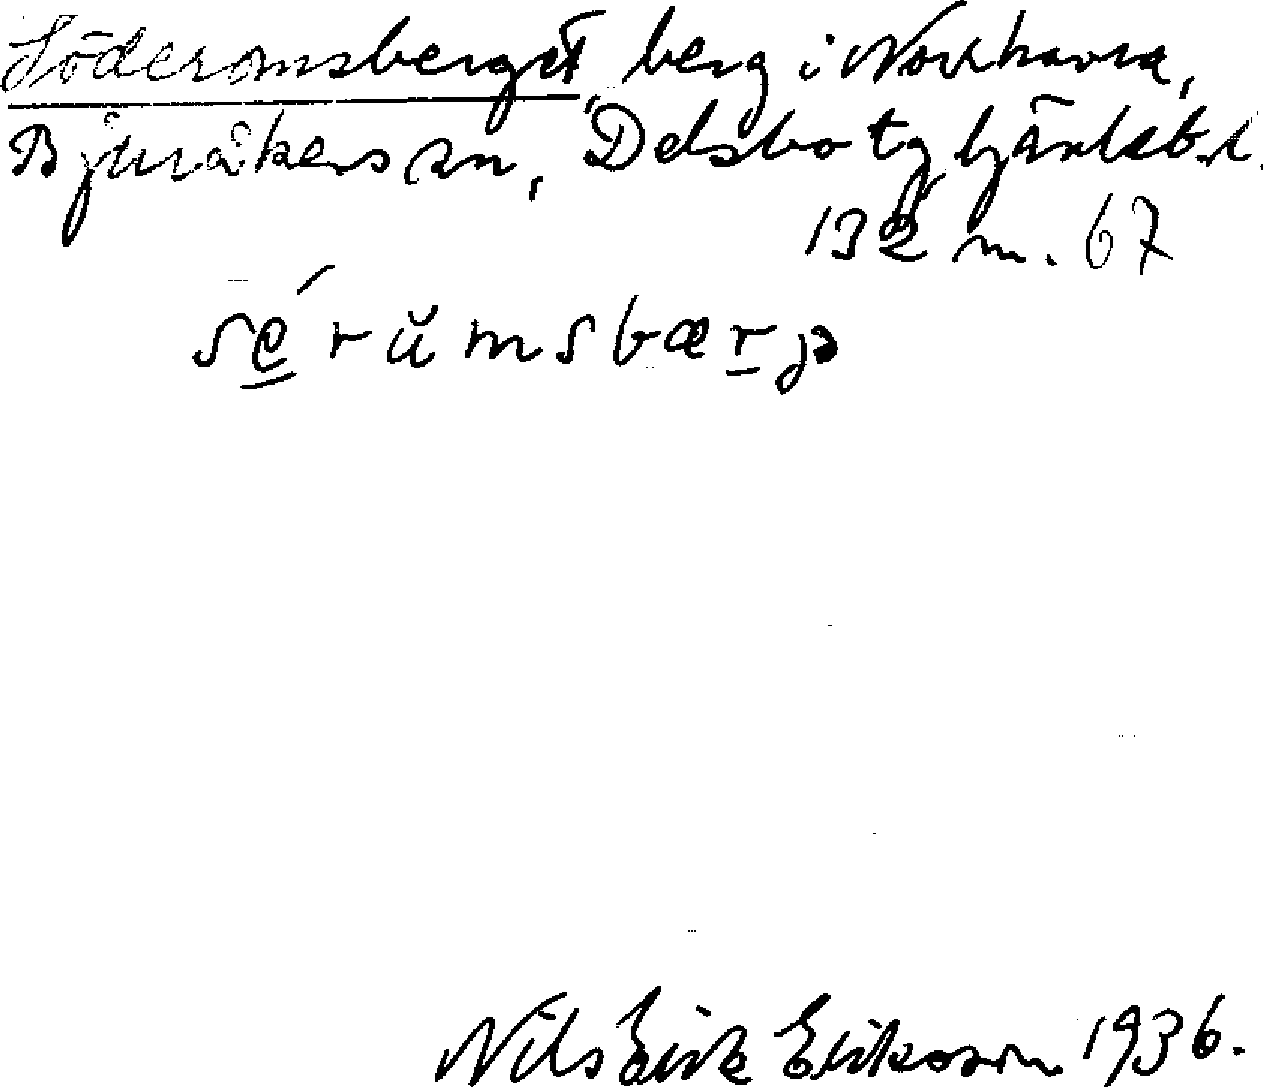 Söderomsberget, berg i Norrhavra,
Bjuråkers sn, Delsbo tg
132 m. 67
sérŭmsbærjə
Nils Eirik Erikson 1936.